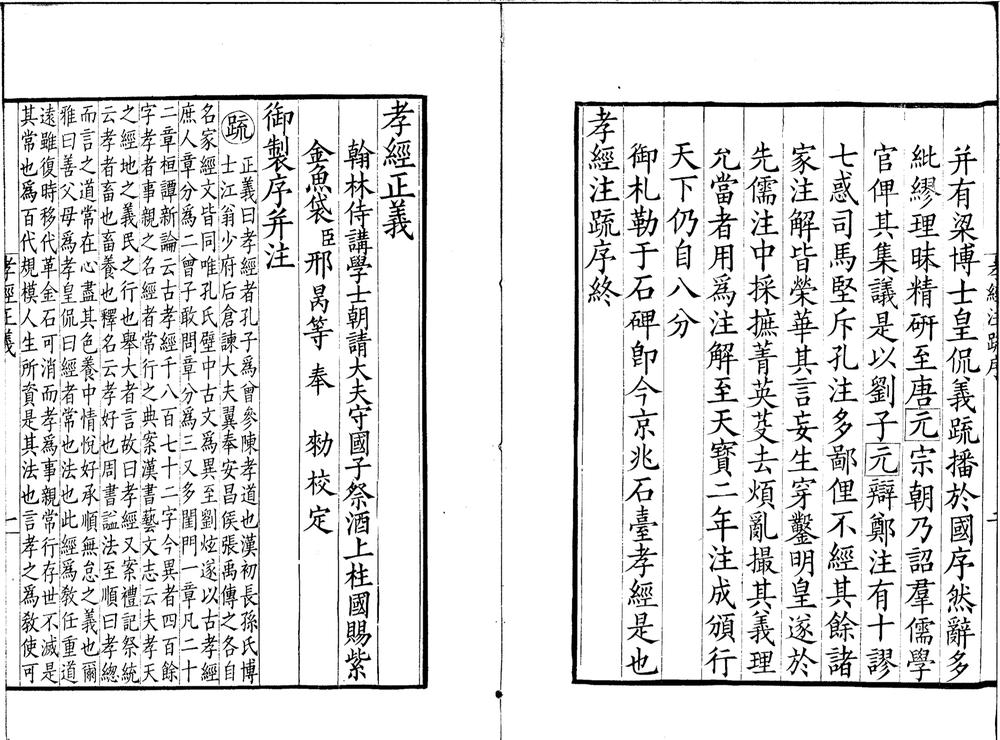 並有梁博士皇侃義疏播於國序然辭多
紕繆理昧精研至唐元宗朝乃詔羣儒學
官俾其集議是以劉子元辯鄭注有十謬
七惑司馬堅斥孔注多鄙俚不經其餘諸
家注解皆榮華其言妄生穿鑿明皇遂於
先儒注中採摭菁英芟去煩亂撮其義理
允當者用爲注解至天寶二年注成頒行
天下仍自八分
御札勒于石碑卽今京兆石臺孝經是也
孝經注疏序終
孝經正義
翰林侍講學士朝請大夫守國子祭酒上柱國賜紫
金魚袋臣邢昺等奉 勑校定
御製序并注
疏 正義曰孝經者孔子爲曾參陳孝道也漢初長孫氏博
士江翁少府后倉諫大夫翼奉安昌侯張禹傳之各自
名家經文皆同唯孔氏壁中古文爲異至劉炫遂以古孝經
庶人章分爲二曾子敢問章分爲三又多閨門一章凡二十
二章桓譚新論云古孝經千八百七十二字今異者四百餘
字孝者事親之名經者常行之典案漢書藝文志云夫孝天
之經地之義民之行也舉大者言故曰孝經又案禮記祭統
云孝者畜也畜養也釋名云孝好也周書謚法至順曰孝總
而言之道常在心盡其色養中情悅好承順無怠之義也爾
雅曰善父母爲孝皇侃曰經者常也法也此經爲教任重道
遠雖復時移代革金石可消而孝爲事親常行存世不滅是
其常也爲百代規模人生所資是其法也言孝之爲教使可
孝經正義 一